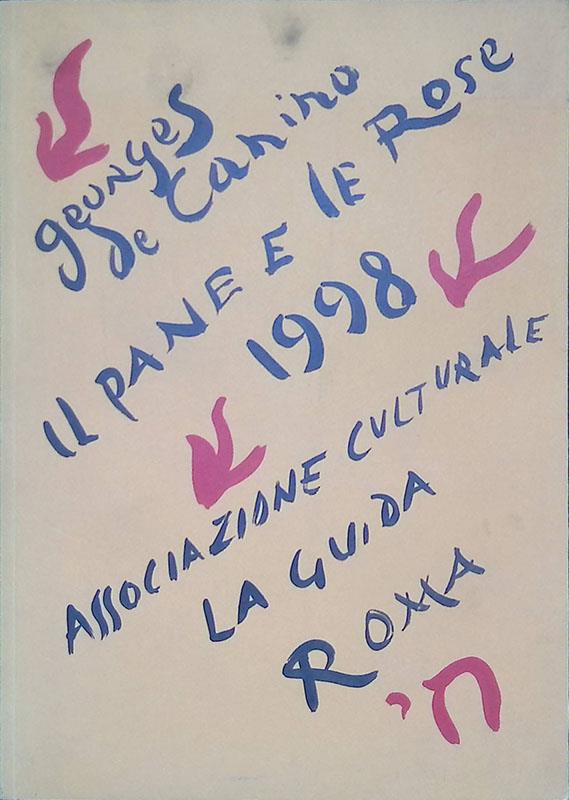 georges
de Canino
IL PANE E LE ROSE
1998
ASSOCIAZIONE CULTURALE
LA GUIDA
ROMA
חי